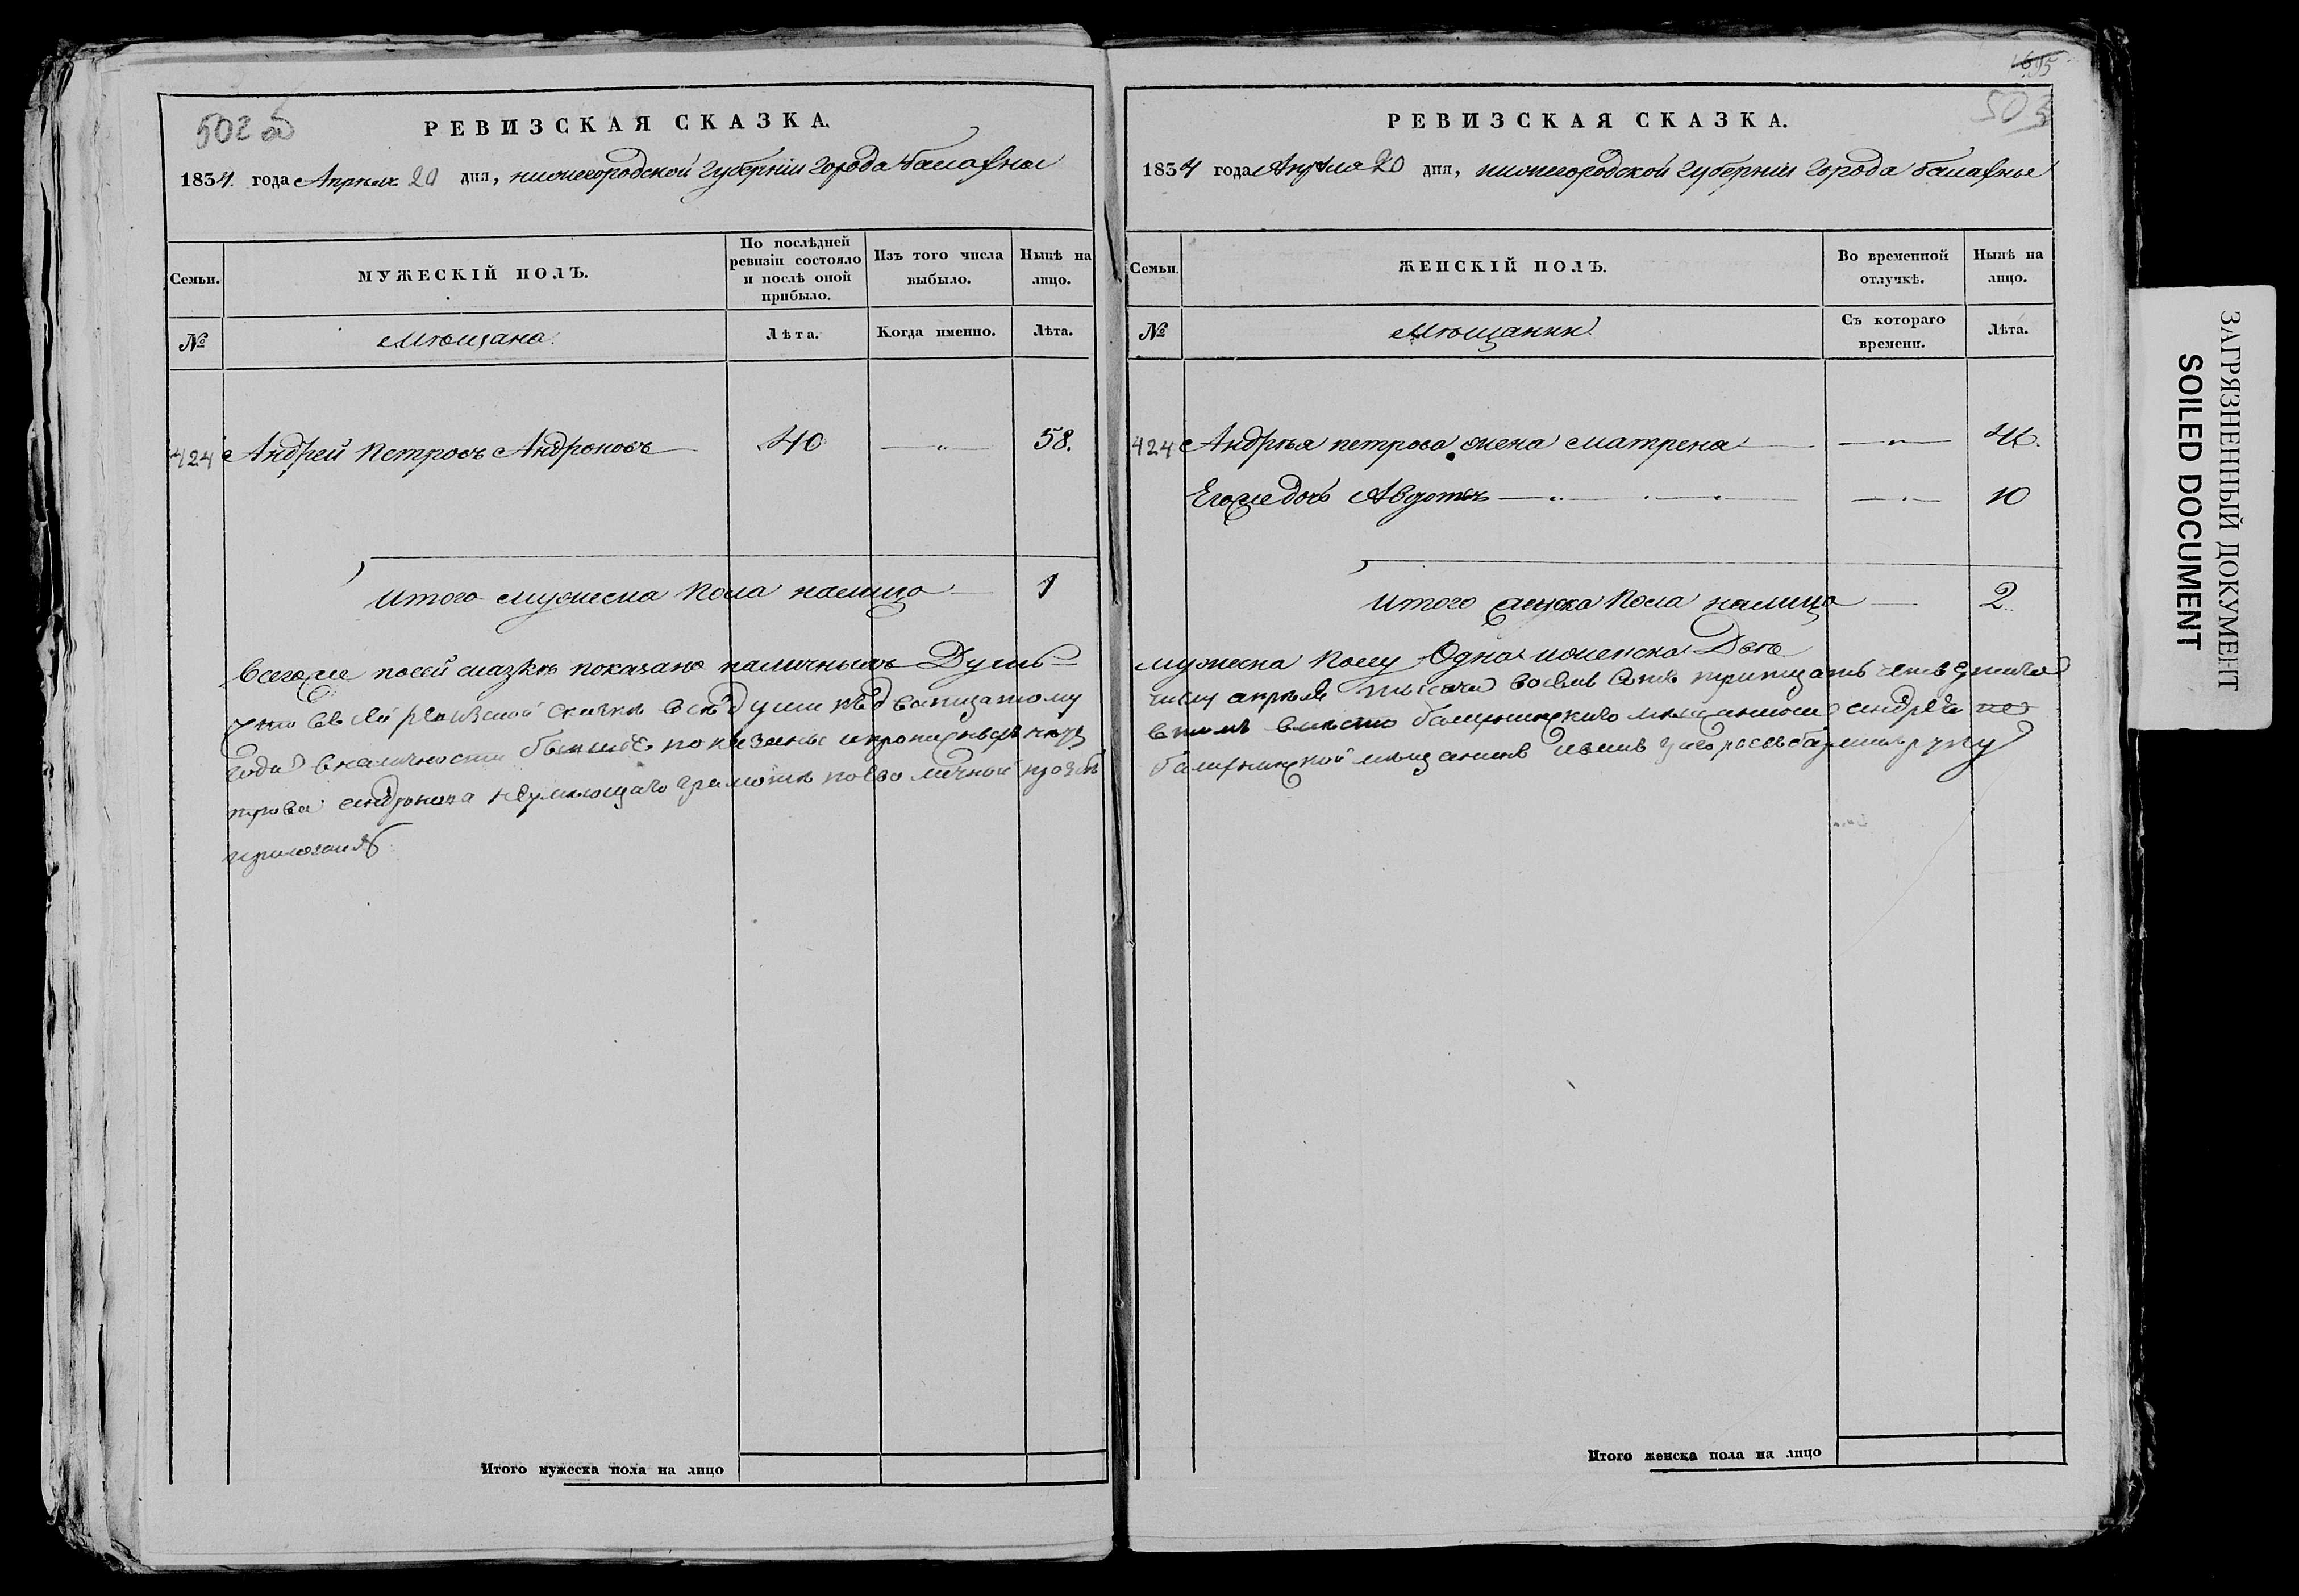 502 об
РЕВИЗСКАЯ СКАЗКА.
1834 года Апреля 20 дня, нижегородской губернiи города балахны
Семьи.
МУЖЕСКІЙ ПОЛЪ.
По послѣдней ревизіи состояло и послѣ оной прибыло.
Изъ того числа выбыло.
Нынѣ на лицо.
№
мѣщана.
Лѣта.
Когда именно.
Лѣта.
424 Андрей Петровъ Андроновъ 40 — 58.
Итого мужеска пола налицо 1
Всего же посей сказкѣ показано наличныхъ Душъ
что в сей ревизской скаскѣ всѣ души к дватцатому
года в наличности бывшие показаны и прописныхъ нѣтъ
трова Андронова неумеющаго грамотѣ по ево личной прозбѣ
приложилъ
503
РЕВИЗСКАЯ СКАЗКА.
1834 года Апреля 20 дня, нижегородской губернiи города балахны
Семьи.
ЖЕНСКІЙ ПОЛЪ.
Во временной отлучкѣ.
Нынѣ на лицо.
№
Мѣщанки
Съ котораго времени.
Лѣта.
424 Андрѣя петрова жена матрена —
Егоже дочь Авдотья — 10
Итого женска пола налицо — 2
мужеска полу Одна и женска Две
числу апреля тысеча восемь сотъ тритцать четвертаго
в томъ вместо балахнинскаго мещанина андрея пе
балахнинской мещанинъ руку
Итого мужеска пола на лицо
Итого женска пола на лицо
ЗАГРЯЗНЕННЫЙ ДОКУМЕНТ
SOILED DOCUMENT